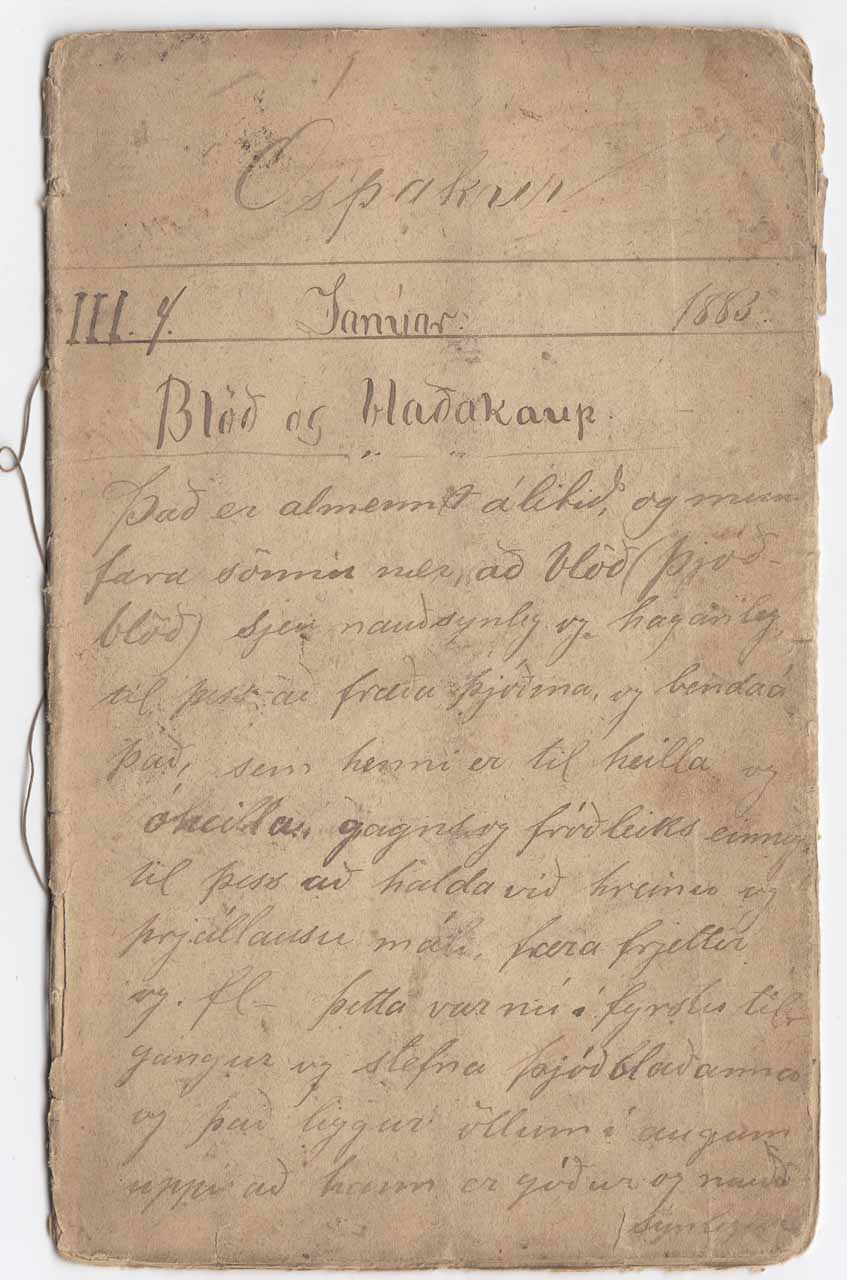 Óspakur
III. 4. Janúar. 1883.
Blöð og blaðakaup.
Það er almennt álitið, og mun
fara sönnu nær, að blöð (þjóð-
blöð) sjeu nauðsynleg og haganleg,
til þess að fræða þjóðina, og benda á
það, sem henni er til heilla og
óheilla, gagns og fróðleiks einnig
til þess að halda við hreinu og
prjállausu máli, færa frjettir
og. fl- Þetta var nú í fyrstu til-
gangur og stefna þjóðblaðanna
og það liggur öllum í augum
uppi að hann er góður og nauð
synlegur